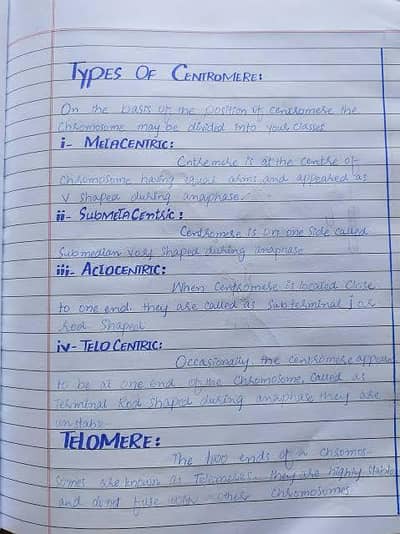 TYPES OF CENTROMERE:
On the basis of the position of centromere the
Chromosome may be divided into four classes
i- METACENTRIC:
Centremere is at the centre of
Chromosome having equal arms and appeared as
V shaped during anaphase.
ii- SUBMETACENTRIC:
Centromere is on one side called
Submedian shaped during anaphase
iii- ACROCENTRIC:
When Centromere is located Close
to one end. they are called as subterminal j or
Rod Shaped
iv- TELOCENTRIC:
Occasionally the centromere appear
to be at one end of the Chromosome. Called as
Terminal Rod shaped during anaphase they are
TELOMERE:
The two ends of a Chromo-
somes are known as Telomeres. they are highly stable
and donot fuse with other chromosomes